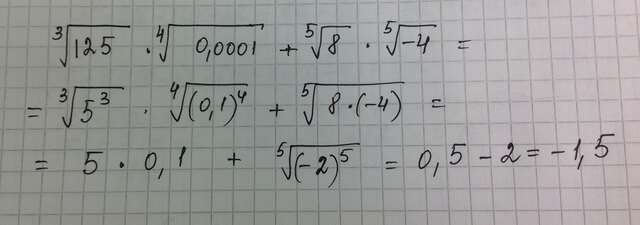 ∛125 · ∜0,0001 + ⁵√8 · ⁵√-4 =
= ∛5³ · ∜(0,1)⁴ + ⁵√8·(-4) =
= 5 · 0,1 + ⁵√(-2)⁵ = 0,5 - 2 = -1,5